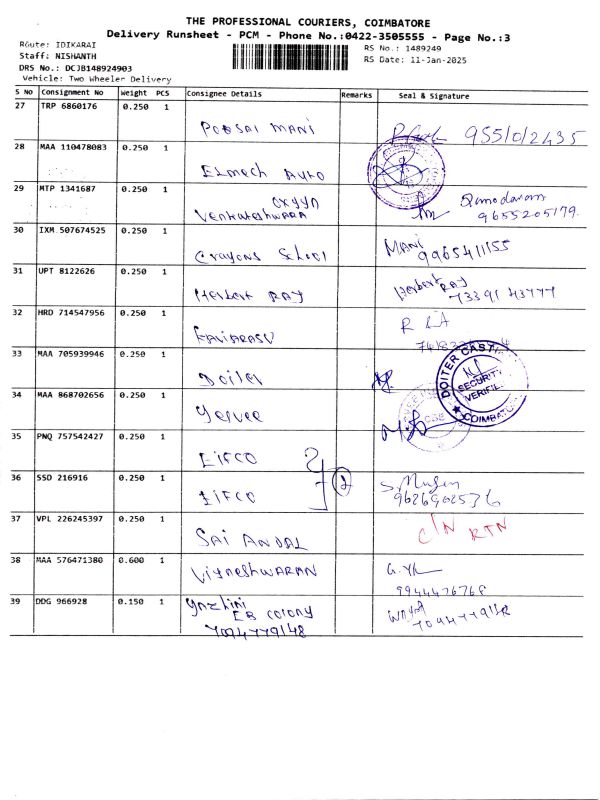 THE PROFESSIONAL COURIERS, COIMBATORE
Delivery Runsheet - PCM - Phone No.:0422-3505555 - Page No.:3
Route: IDIKARAI
Staff: NISHANTH
DRS No.: DCJB148924903
Vehicle: Two Wheeler Delivery
RS No.: 1489249
RS Date: 11-Jan-2025
S No Consignment No Weight PCS Consignee Details Remarks Seal & Signature
27 TRP 6860176 0.250 1 MANI
28 MAA 110478083 0.250 1 Elmech Auto
29 MTP 1341687 0.250 1 Venkateshwara
9655205179
30 IXM 507674525 0.250 1 Crayons School MANI
9965411155
31 UPT 8122626 0.250 1 Herbert RAJ Herbert RAJ
32 HRD 714547956 0.250 1 KAVIARASU
33 MAA 705939946 0.250 1 Doiter
DOITER CAST
SECURITY
COIMBATORE
34 MAA 868702656 0.250 1 Yesvee
35 PNQ 757542427 0.250 1
36 SSD 216916 0.250 1 2
37 VPL 226245397 0.250 1 SAI ANDAL RTN
38 MAA 576471380 0.600 1 Vigneshwaran
39 DDG 966928 0.150 1 Yazhini
EB Colony
7094779148